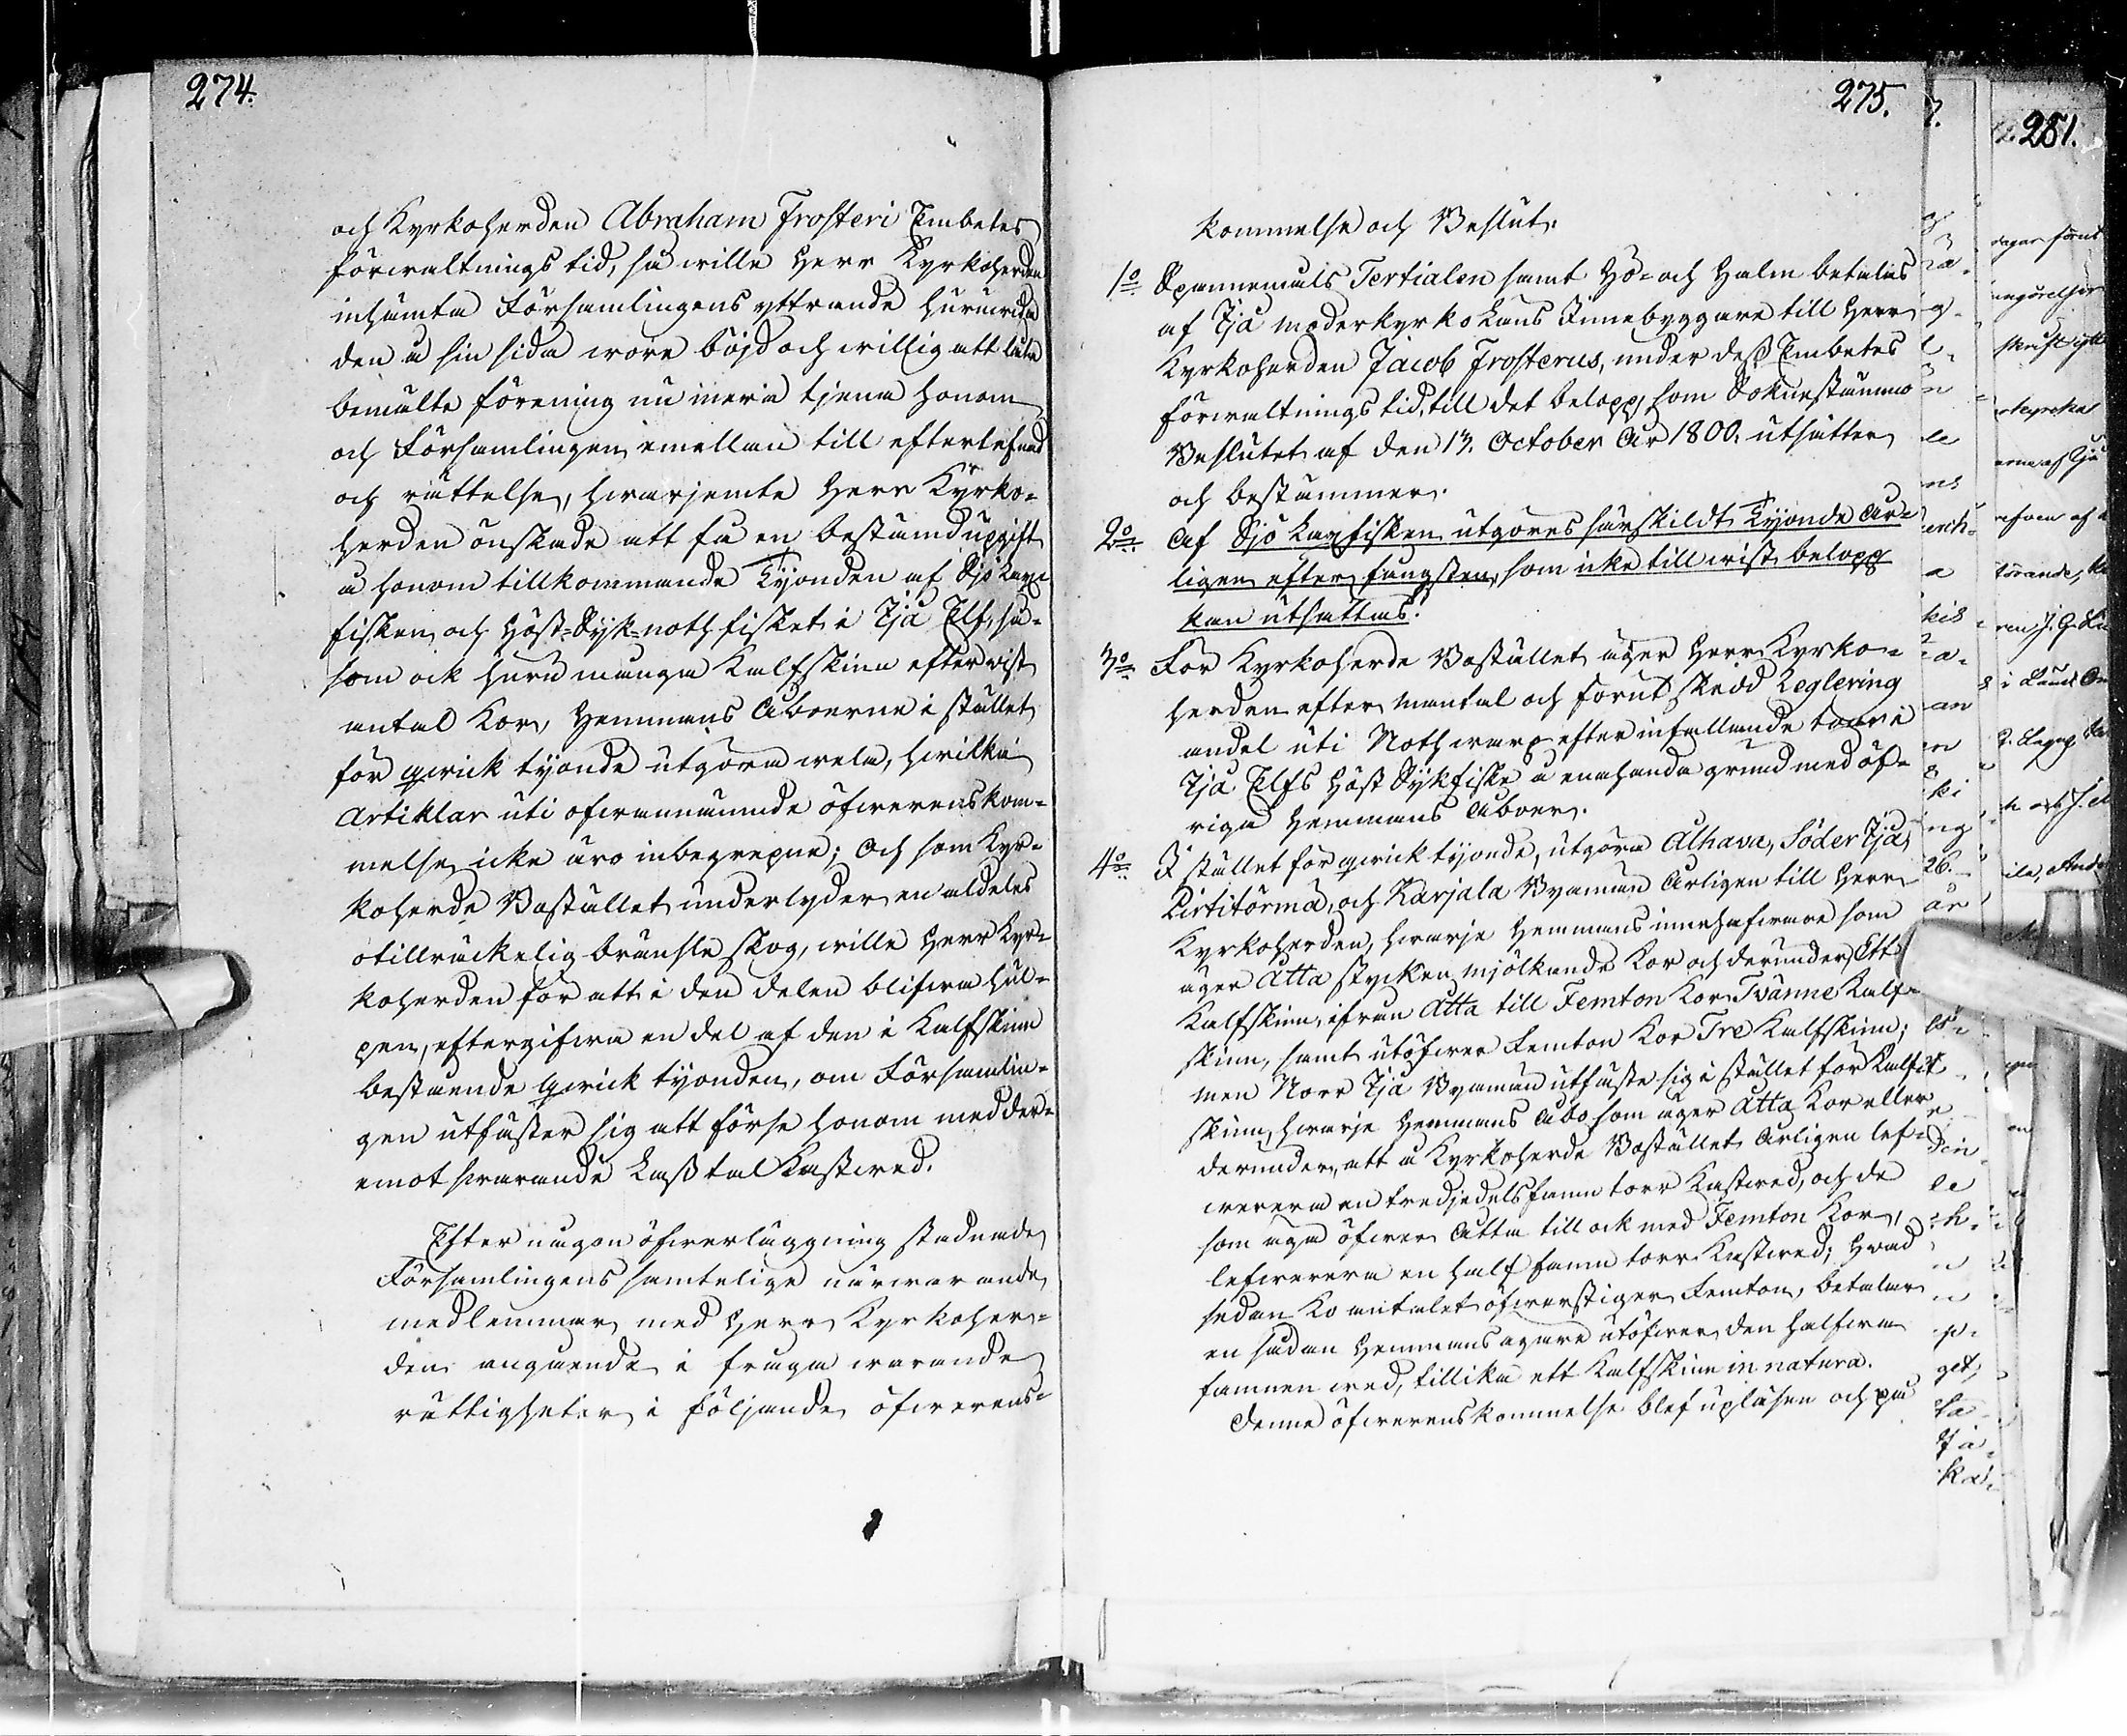 274.
och Kyrkoherden Abraham Frosteri Embetes
förwaltnings tid, så wille Herr Kyrkoherden
inhämta Församlingens yttrande huruvida
den å sin sida wore böjd och willig att låta
bemälte förening nu mera tjena honom
och Församlingen emellan till efterlefnad
och rättelse, hwarjemte Herr Kyrko-
herden önskade att få en bestämd upgift
å honom tillkommande Tijonden af Sjö Lax
fisken och Höst-Syk-noth fisket i Ijå Elf, så-
som ock huru många Kalfskinn efter wist
antal Kor, Hemmans Åboerne i stället
för qwick tyonde utgöra wela, hwilka
Artiklar uti ofwannämnde öfwerenskom-
melse icke äro inbegrepne; Och som Kyr-
koherde Bostället underlyder en aldeles
otillräckelig bränsle skog, wille Herr Kyr-
koherden för att i den delen blifwa hul-
pen, eftergifwa en del af den i Kalfskinn
bestående Qwick tyonden, om Församlin-
gen utfäster sig att förse honom med der-
emot swarande Lass tal Kastwed.
Efter någon öfwerläggning stadnade
Församlingens samtelige närwarande
medlemmar med Herr Kyrkoher-
den angående i fråga warande
rättigheter i följande öfwerens-
275.
kommelse och Beslut:
1o Spannemåls Tertialen samt Hö- och Halm betalas
af Ijå moderkyrko Låns Innebyggare till Herr
Kyrkoherden Jacob Frosterus, under dess Embetes
förwaltnings tid, till det belopp, som Sokne stämmo
Beslutet af den 13. October År 1800. utsätter
och bestämmer.
2o Af Sjö Laxfisken utgöres särskildt Tijonde År-
ligen efter fångsten, som icke till wist belopp
kan utsättas.
3o För Kyrkoherde Bostället äger Herr Kyrko-
herden efter mantal och förut skedd Reglering
andel uti Noth warp efter infallande tour i
Ijå Elfs Höst Sykfiske å enahanda grund med öf-
riga Hemmans Åboer.
4o I stället för qwick tyonde, utgöra Alhava, Söder Ijå,
Pirtitörmä, och Karjala Byamän Årligen till Herr
Kyrkoherden, hwarje Hemmans innehafware som
äger Åtta stycken mjölkande Kor och derunder, Ett
Kalfskinn, ifrån Åtta till Femton Kor Tvänne Kalf-
skinn, samt utöfwer Femton Kor Tre Kalfskinn;
men Norr Ijå Byamän utfäste sig i stället för Kalf-
skinn, hwarje Hemmans Åbo som äger Åtta Kor eller
derunder, att å Kyrkoherde Bostället Årligen lef-
werera en tredjedels famn torr Kastwed, och de
som äga öfwer Åtta till ock med Femton Kor,
lefwerera en half famn torr Kastwed; Hvad
sedan Ko antalet öfwerstiger Femton, betalar
en sådan Hemmans ägare utöfwer den halfwa
famnen wed, tillika ett Kalfskinn in natura.
Denne öfwerenskommelse blef upläsen och på
281.